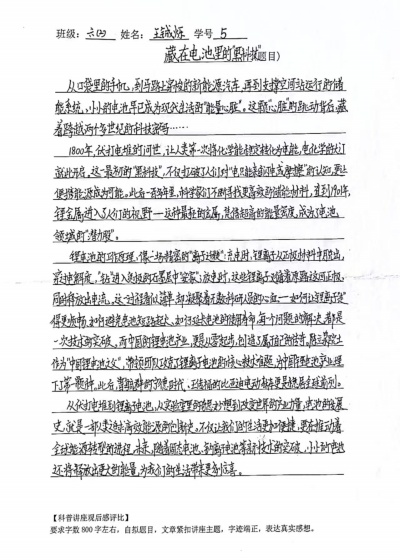 班级：六(4) 姓名：王铖烁 学号 5
藏在电池里的"黑科技"题目）
从口袋里的手机，到马路上穿梭的新能源汽车，再到支撑空间站运行的储
能系统，小小的电池早已成为现代生活的"能量心脏"。这颗"心脏"的跳动背后，藏
着跨越两个多世纪的科技密码……
1800年，伏打电堆的问世，让人类第一次将化学能稳定转化为电能，电化学的大门
就此打开。这一最初的"黑科技"，不仅打破了人们对"电只能来自闪电或摩擦"的认知，更让
便携能源成为可能。此后一百多年里，科学家们不断寻找更高效的储能材料，直到
锂金属进入了人们的视野——这种最轻的金属，凭借超高的能量密度，成为了电池
领域的"潜力股"。
锂电池的工作原理，像一场精密的"离子迁徙"：充电时，锂离子从正极材料中脱出，
穿过电解质，"钻"进负极的石墨层中"安家"；放电时，这些锂离子又循着原路返回正极，
同时释放出电流。这一过程看似简单，却凝聚着无数科研人员的心血——如何让锂离子"走"
得更顺畅、如何避免电池短路起火、如何延长电池的使用寿命，每个问题的解决，都是
一次技术的突破。而中国的锂电池产业，更是从零起步，创造了属于自己的传奇。陈立泉院士
作为"中国锂电池之父"，带领团队攻克了锂离子电池的核心技术难题，为中国锂电池产业埋
下了第一颗种子。此后，曾毓群的宁德时代、王传福的比亚迪
从伏打电堆到锂离子电池，从实验室里的奇思妙想到改变世界的产业力量，电池的发展
史，就是一部人类追求高效能源的创新史。不仅让我们的生活更加便捷，更在推动着
全球能源转型的进程。未来，随着固态电池、钠离子电池等新技术的突破，小小的电池
还将释放出更大的能量，为我们的生活带来更多惊喜。
【科普讲座观后感评比】
要求字数 800 字左右，自拟题目，文章紧扣讲座主题，字迹端正，表达真实感想。